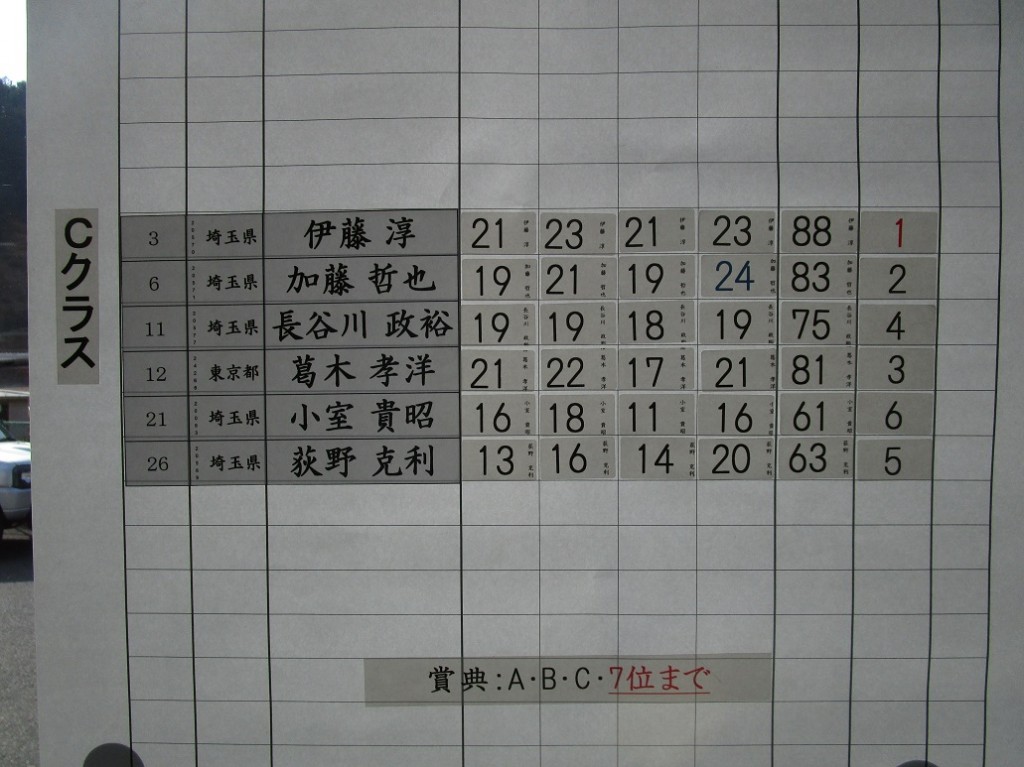 Cクラス
3 埼玉県 伊藤 淳 21 23 21 23 88 1
6 埼玉県 加藤 哲也 19 21 19 24 83 2
11 埼玉県 長谷川 政裕 19 19 18 19 75 4
12 東京都 葛木 孝洋 21 22 17 21 81 3
21 埼玉県 小室 貴昭 16 18 11 16 61 6
26 埼玉県 荻野 克利 13 16 14 20 63 5
賞典:A・B・C・7位まで